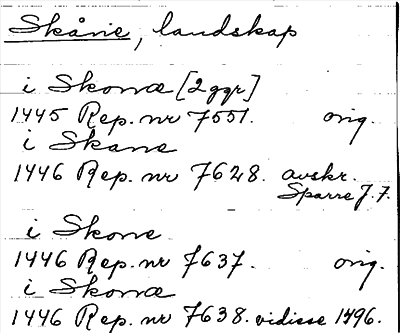 Skåne, landskap
i Skonæ [2 ggr]
1445 Rep. nr 7551. orig.
i Skane
1446 Rep. nr 7628. avskr.
Sparre J. 7.
i Skone
1446 Rep. nr 7637. orig.
i Skonæ
1446 Rep. nr 7638. vidisse 1496.